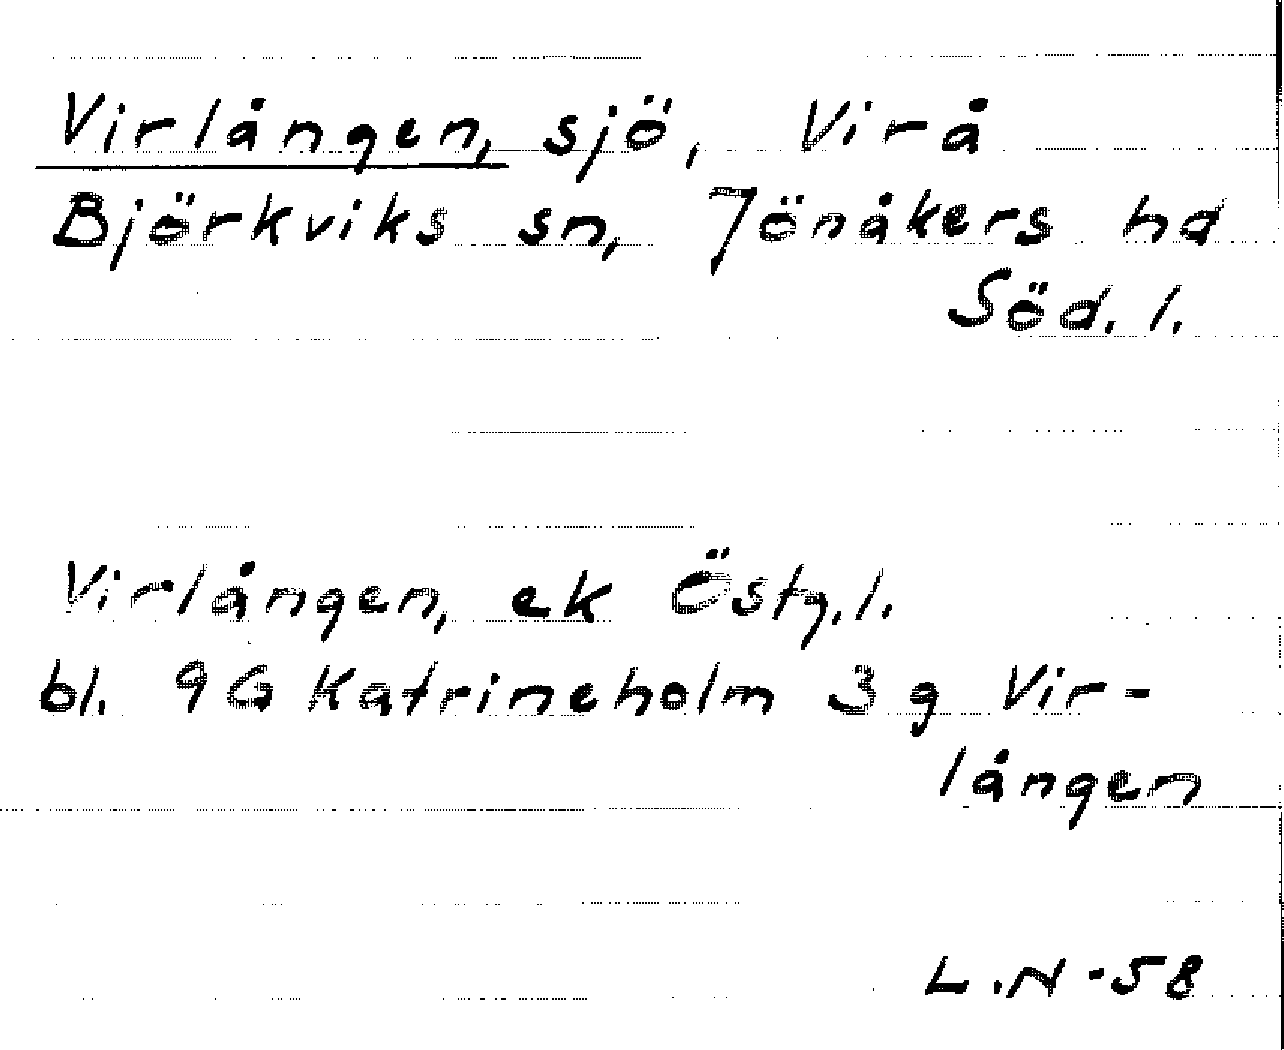 Virlången, sjö, Virå
Björkviks sn, Jönåkers hd
Söd. l.
Virlången, ek Östg. l.
bl. 9G Katrineholm 3g Vir-
lången
L.N-58